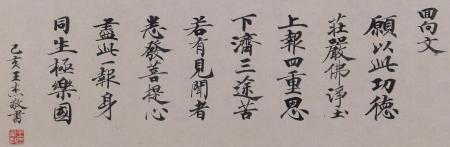 回向文
願以此功德
莊嚴佛淨土
上報四重恩
下濟三途苦
若有見聞者
悉發菩提心
盡此一報身
同生極樂國
己亥王杰敬書